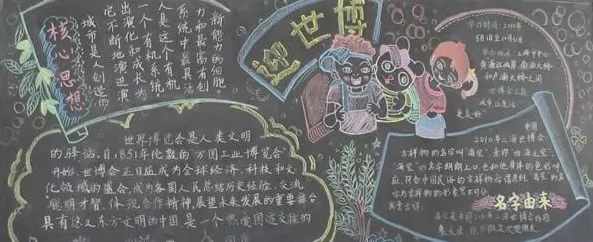 核心思想
城市是人创造的
不断地演进
演化和成长为
一个有机系统。
人是这个有机
系统中最具活
力和最富有创
新能力的细胞。
迎世博
世界博览会是人类文明
的驿站。自1851年伦敦的“万国工业博览会”
开始,世博会正日益成为全球经济、科技和文
化领域的盛会,成为各国人民总结历史经验、交流
聪明才智、体现合作精神、展望未来发展的重要舞台
具有悠久东方文明的中国是一个热爱国际交往的
举办时间:2010年
5月1日至10月31日
举办地点:上海市中心
黄浦江两岸,南浦大桥
和卢浦大桥之间
世博会主题
城市让生活
更美好
中国
2010年上海世博会
吉祥物的名字叫“海宝”意即“四海之宝”
“海宝”的名字朗朗上口,也和他身体的色彩呼
应,符合中国民俗的吉祥称谓原则。“海宝”的名
名字由来